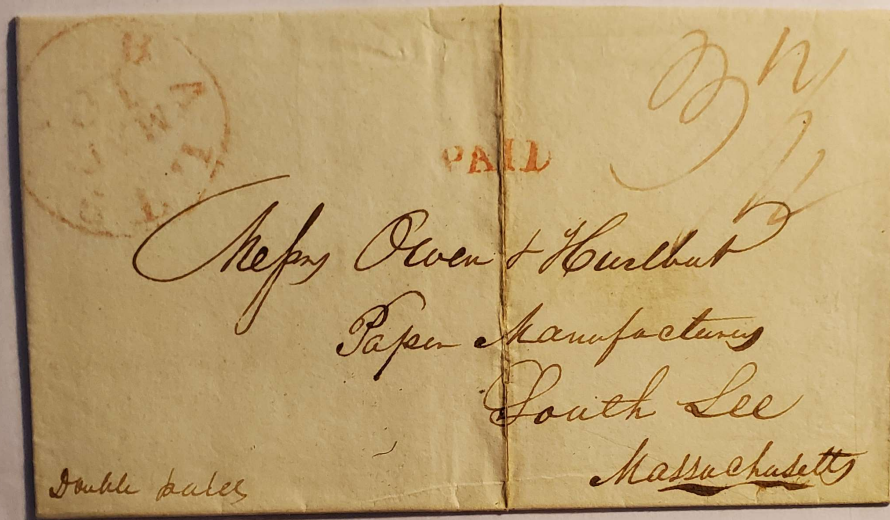 BALT
PAID
Messrs Owen & Hurlbut
Paper Manufacturers
South Lee
Massachusetts
Double